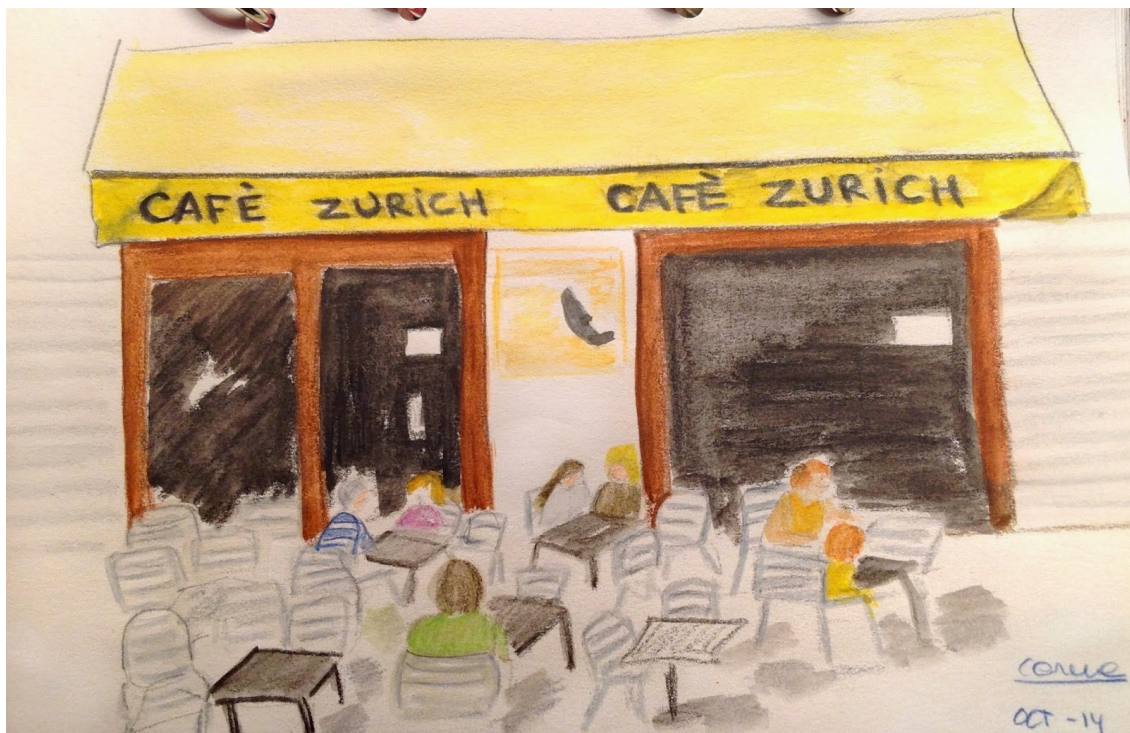 CAFÈ ZURiCH CAFÈ ZURiCH
OCT -14